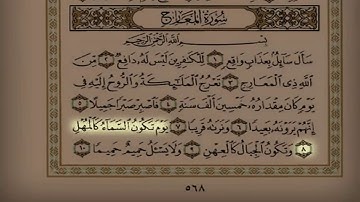 سُورَةُ الْمَعَارِجِ
بِسْمِ اللَّهِ الرَّحْمَٰنِ الرَّحِيمِ
سَأَلَ سَائِلٌ بِعَذَابٍ وَاقِعٍ ١ لِلْكَافِرِينَ لَيْسَ لَهُ دَافِعٌ ٢ مِنَ
اللَّهِ ذِي الْمَعَارِجِ ٣ تَعْرُجُ الْمَلَائِكَةُ وَالرُّوحُ إِلَيْهِ فِي
يَوْمٍ كَانَ مِقْدَارُهُ خَمْسِينَ أَلْفَ سَنَةٍ ٤ فَاصْبِرْ صَبْرًا جَمِيلًا ٥
إِنَّهُمْ يَرَوْنَهُ بَعِيدًا ٦ وَنَرَاهُ قَرِيبًا ٧ يَوْمَ تَكُونُ السَّمَاءُ كَالْمُهْلِ
٨ وَتَكُونُ الْجِبَالُ كَالْعِهْنِ ٩ وَلَا يَسْأَلُ حَمِيمٌ حَمِيمًا ١٠
٥٦٨